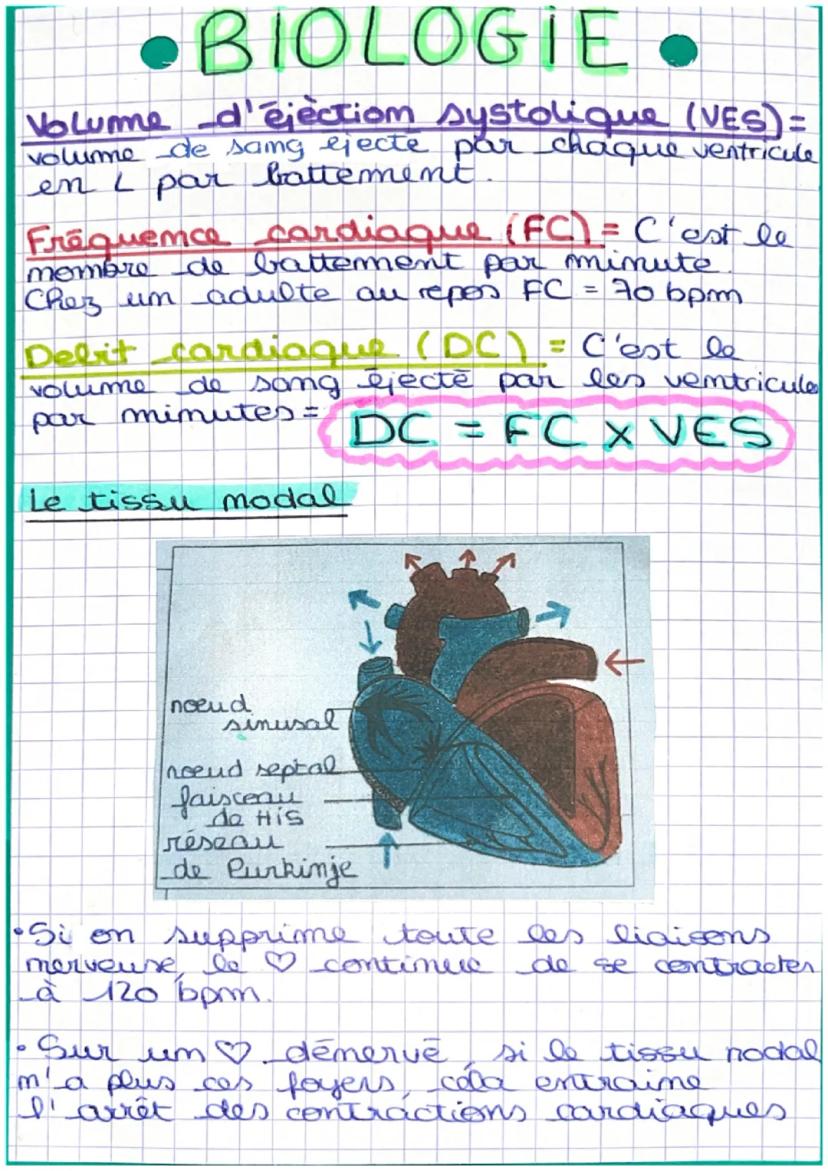 • BIOLOGIE •
Volume d'éjèction systolique (VES) =
volume de sang ejecté par chaque ventricule
en L par battement.
Fréquence cardiaque (FC) = C'est le
nombre de battement par minute.
Chez un adulte au repos FC = 70 bpm
Debit cardiaque (DC) = C'est le
volume de sang éjecté par les ventricules
par minutes = DC = FC x VES
Le tissu nodal
nœud
sinusal
nœud septal
faisceau
de His
réseau
de Purkinje
• Si on supprime toute les liaisons
nerveuse, le ♡ continue de se contracter
à 120 bpm.
• Sur un ♡ dénervé, si le tissu nodal
n'a plus ces foyers, cela entraine
l'arrêt des contractions cardiaques